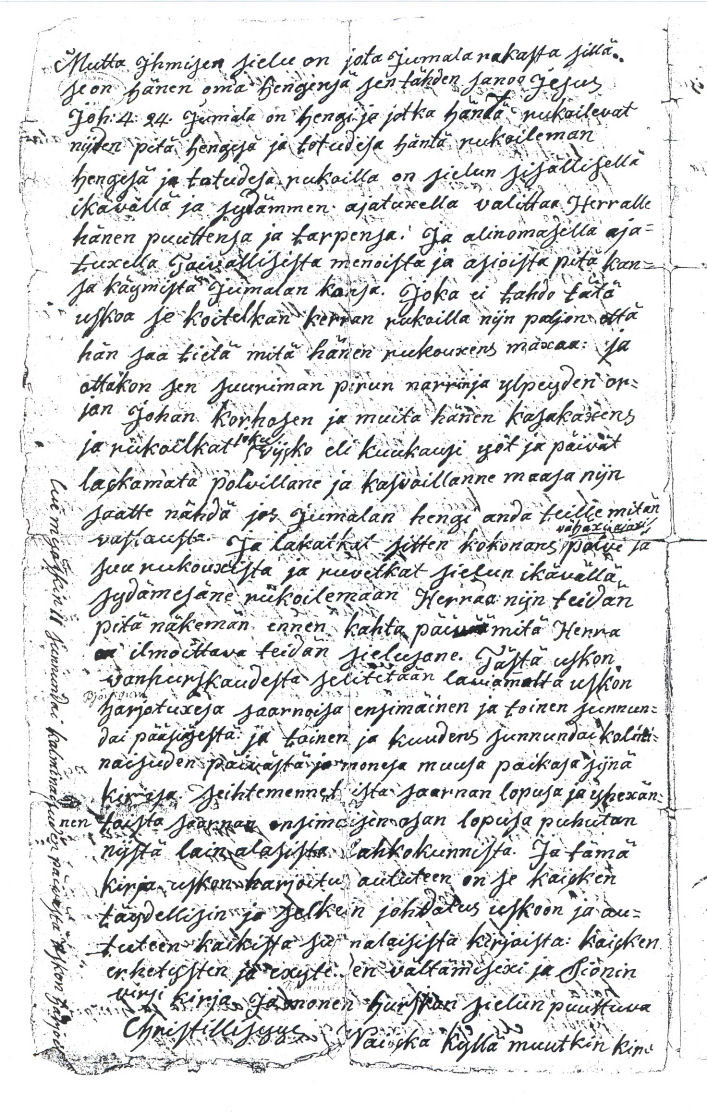 Mutta Ihmisen sielu on jota Jumala rakasta sillä
se on hänen oma henginsä sen tähden sanoo Jesus
Joh. 4. 24. Jumala on hengi ja jotka händä rukoilevat
nijden pitä hengesä ja totudesa händä rukoileman
hengesä ja totudesa rukoilla on sielun sisällisellä
ikävällä ja sydämmen ajatuxella valittaa Herralle
hänen puuttensa ja tarpensa. Ja alinomasella aja=
tuxella Taivallisista menoista ja asioista pitä kan=
sa käymistä Jumalan kansa. Joka ei tahdo tätä
uskoa se koitelkan kerran rukoilla nijn paljon että
hän saa tietä mitä hänen rukouxens maxaa: ja
ottakon sen suuriman pirun narrinja ylpeyden or=
jan Johan Korhosen ja muita hänen kasakaxens
ja rukoilkat joku vijcko eli kuukausi yöt ja päivät
lackamata polvillane ja kasvoillanne maasa nijn
saatte nähdä jos Jumalan hengi anda teille mitän
vastausta. Ja lakatkat sitten kokonans polve ja
suu rukouxista ja ruvetkat sielun ikävällä
sydämesäne rukoilemaan Herraa nijn teidän
pitä näkemän ennen kahta päivää mitä Herra
ilmoittava teidän sielusane. Tästä uskon
vanhurskaudesta selitetään laviamalta uskon
harjotuxesa saarnoisa ensimäinen ja toinen sunnun=
dai pääsiäsestä: ja toinen ja kuudens sunnundai kolmi=
naisuden päivästä ja monesa muusa paikasa sijnä
kirjasa. Seihtemennest ista saarnan lopusa ja yhexän=
nen taista saarnan ensimäisen osan lopusa puhutan
nijstä lain alasista lahkokunnista. Ja tämä
kirja uskon harjoitu aututeen on se kaicken
täydellisin ja selkein johdatus uskoon ja au=
tuteen kaikista su nalaisista kirjoista: kaicken
erhetysten ja exyte en vältämisexi ja Sionin
virsi kirja. Ja monen hurskan sielun puuttuva
Christillisyys Vaicka kyllä muutkin kirj